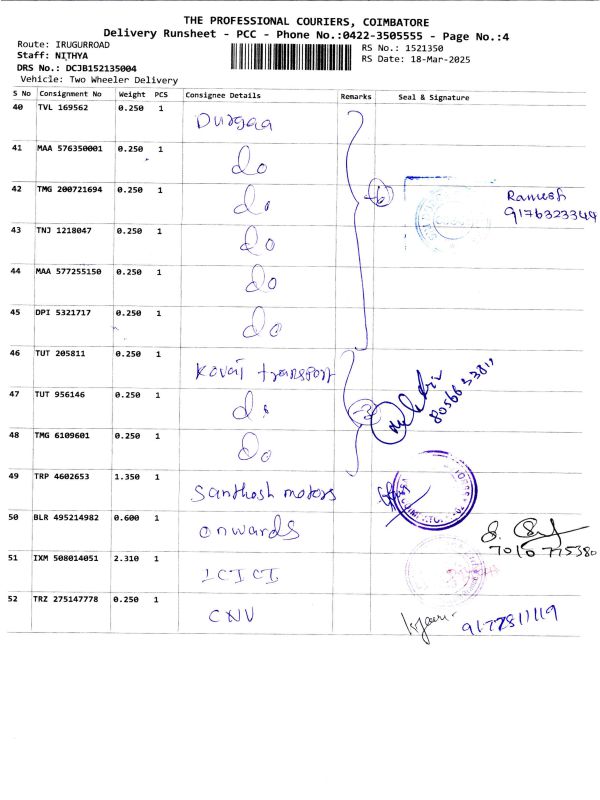 THE PROFESSIONAL COURIERS, COIMBATORE
Delivery Runsheet - PCC - Phone No.:0422-3505555 - Page No.:4
Route: IRUGURROAD
Staff: NITHYA
DRS No.: DCJB152135004
Vehicle: Two Wheeler Delivery
RS No.: 1521350
RS Date: 18-Mar-2025
S No Consignment No Weight PCS Consignee Details Remarks Seal & Signature
40 TVL 169562 0.250 1 Durgaa
41 MAA 576350001 0.250 1 do
42 TMG 200721694 0.250 1 do 6 Ramesh
9176323344
43 TNJ 1218047 0.250 1 do
44 MAA 577255150 0.250 1 do
45 DPI 5321717 0.250 1 do
46 TUT 205811 0.250 1 Kovai transport
47 TUT 956146 0.250 1 do 3
48 TMG 6109601 0.250 1 do
49 TRP 4602653 1.350 1 Santhosh motors
50 BLR 495214982 0.600 1 onwards
7010775380
51 IXM 508014051 2.310 1 ICICI
52 TRZ 275147778 0.250 1 CNV